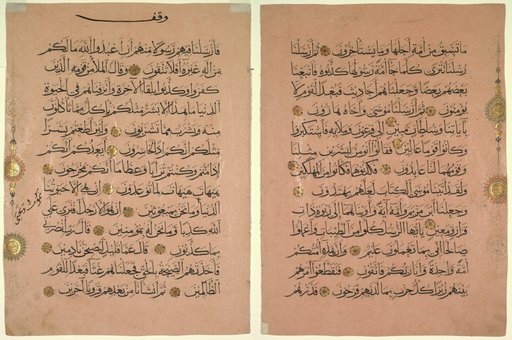 وقف
فأرسلنا فيهم رسولا منهم أن اعبدوا الله ما لكم
من إله غيره أفلا تتقون وقال الملأ من قومه الذين
كفروا وكذبوا بلقاء الآخرة وأترفناهم في الحيوة
الدنيا ما هذا إلا بشر مثلكم يأكل مما تأكلون
منه ويشرب مما تشربون ولئن أطعتم بشرا
مثلكم إنكم إذا لخاسرون أيعدكم أنكم
إذا متم وكنتم ترابا وعظاما أنكم مخرجون
هيهات هيهات لما توعدون إن هي إلا حيوتنا
نموت ونحيى
الدنيا وما نحن بمبعوثين إن هو إلا رجل افترى على
الله كذبا وما نحن له بمؤمنين قال رب انصرني
بما كذبون قال عما قليل ليصبحن نادمين
فأخذتهم الصيحة بالحق فجعلناهم غثاء فبعدا للقوم
الظالمين ثم أنشأنا من بعدهم قرونا آخرين
ما تسبق من أمة أجلها وما يستأخرون ثم أرسلنا
رسلنا تترى كلما جاء أمة رسولها كذبوه فأتبعنا
بعضهم بعضا وجعلناهم أحاديث فبعدا لقوم لا
يؤمنون ثم أرسلنا موسى وأخاه هارون
بآياتنا وسلطان مبين إلى فرعون وملإيه فاستكبروا
وكانوا قوما عالين فقالوا أنؤمن لبشرين مثلنا
وقومهما لنا عابدون فكذبوهما فكانوا من المهلكين
ولقد آتينا موسى الكتاب لعلهم يهتدون
وجعلنا ابن مريم وأمه آية وآويناهما إلى ربوة ذات
قرار ومعين يا أيها الرسل كلوا من الطيبات واعملوا
صالحا إني بما تعملون عليم وإن هذه أمتكم
أمة واحدة وأنا ربكم فاتقون فتقطعوا أمرهم
بينهم زبرا كل حزب بما لديهم فرحون فذرهم